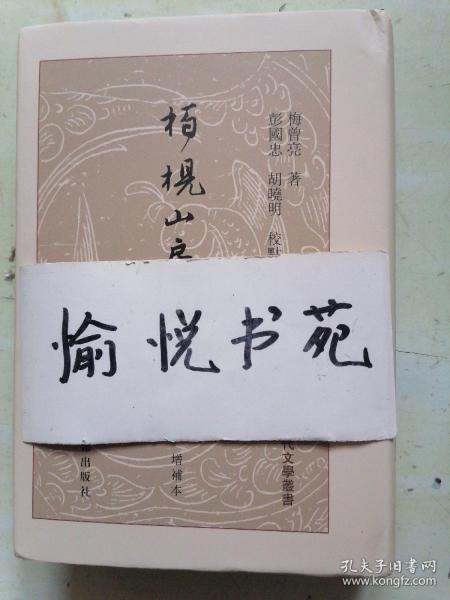 梅曾亮 著
彭國忠 胡曉明 校點
柏梘山房
愉悦书苑
代文學叢書
增補本
出版社
孔夫子旧书网
www.kongfz.com